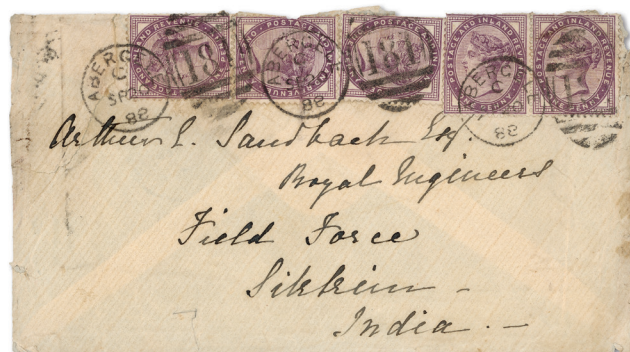 POSTAGE AND INLAND REVENUE
ABERGELE
C
SP
88
181
Arthur E. Sandbach Esq.
Royal Engineers
Field Force
Sikkim -
India. -